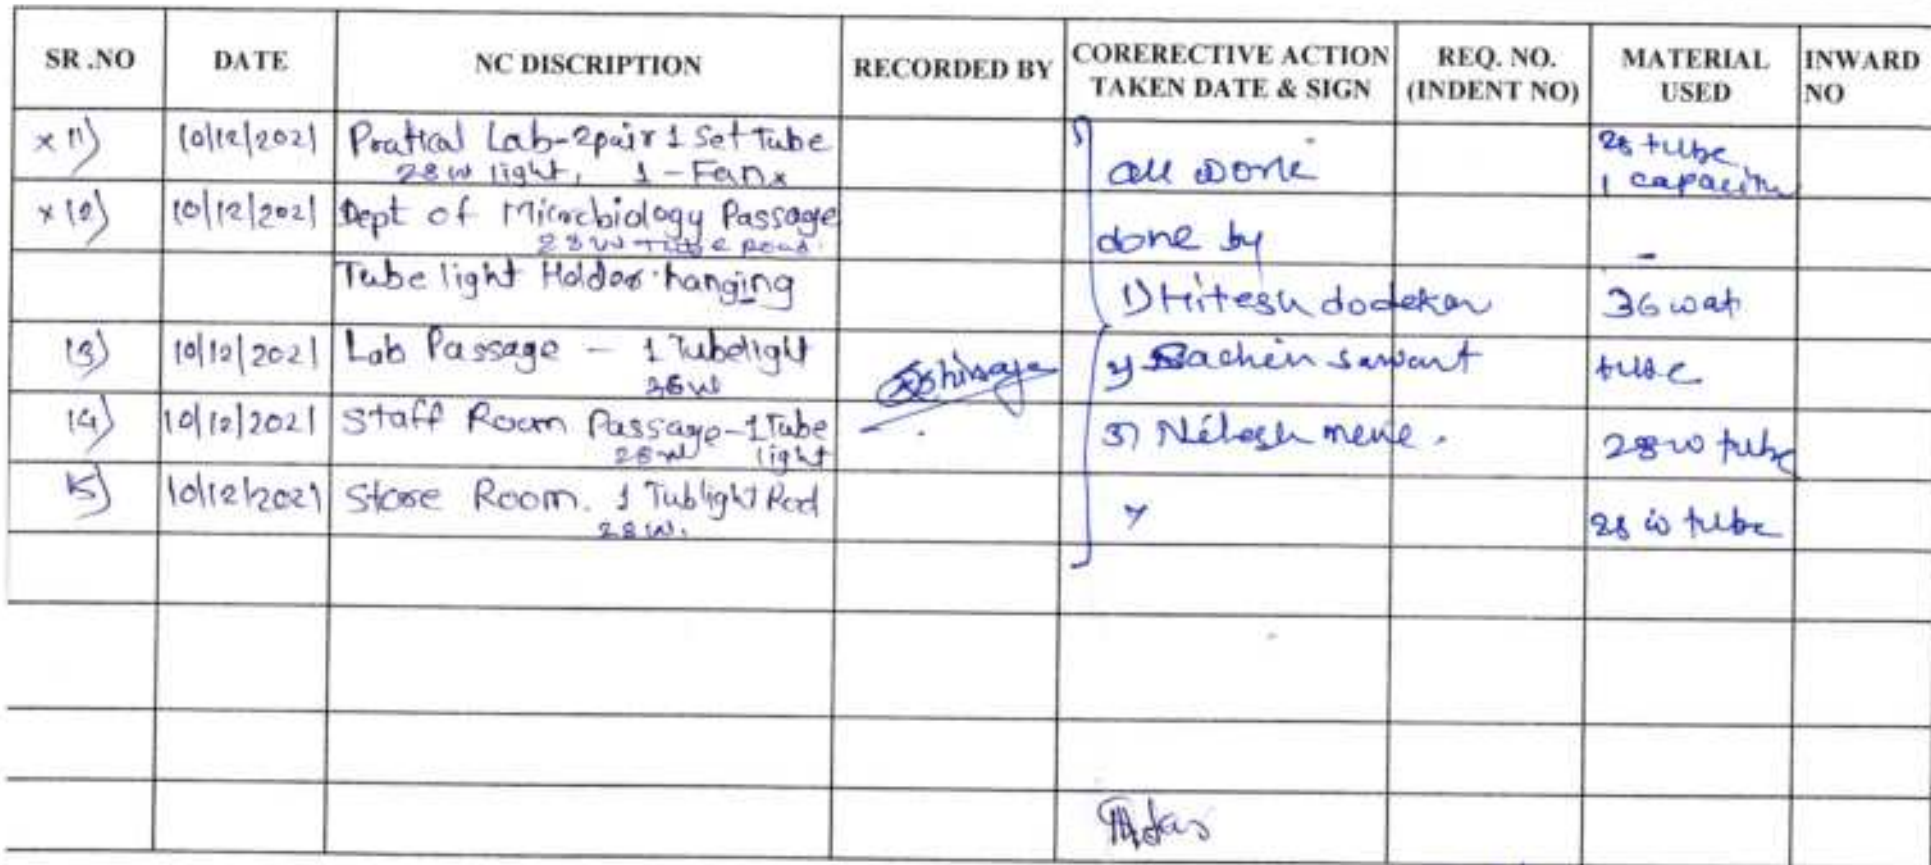 SR .NO DATE NC DISCRIPTION RECORDED BY CORERECTIVE ACTION TAKEN DATE & SIGN REQ. NO. (INDENT NO) MATERIAL USED INWARD NO
x 11) 10/12/2021 Pratical Lab-2pair 1 Set Tube all work 28 tube
28 w light, 1 - Fan x 1 capacitu
x 12) 10/12/2021 Dept of Microbiology Passage done by -
28 w Tube
Tube light Holder hanging 1) Hitesh dodekar 36 wat
13) 10/12/2021 Lab Passage - 1 Tubelight 2) Sachin sawant tube
36 w
14) 10/12/2021 Staff Room Passage-1 Tube 3) Nilesh mene . 28 w tube
28 w light
15) 10/12/2021 Store Room. 1 Tublight Rod 28 w tube
28 w.